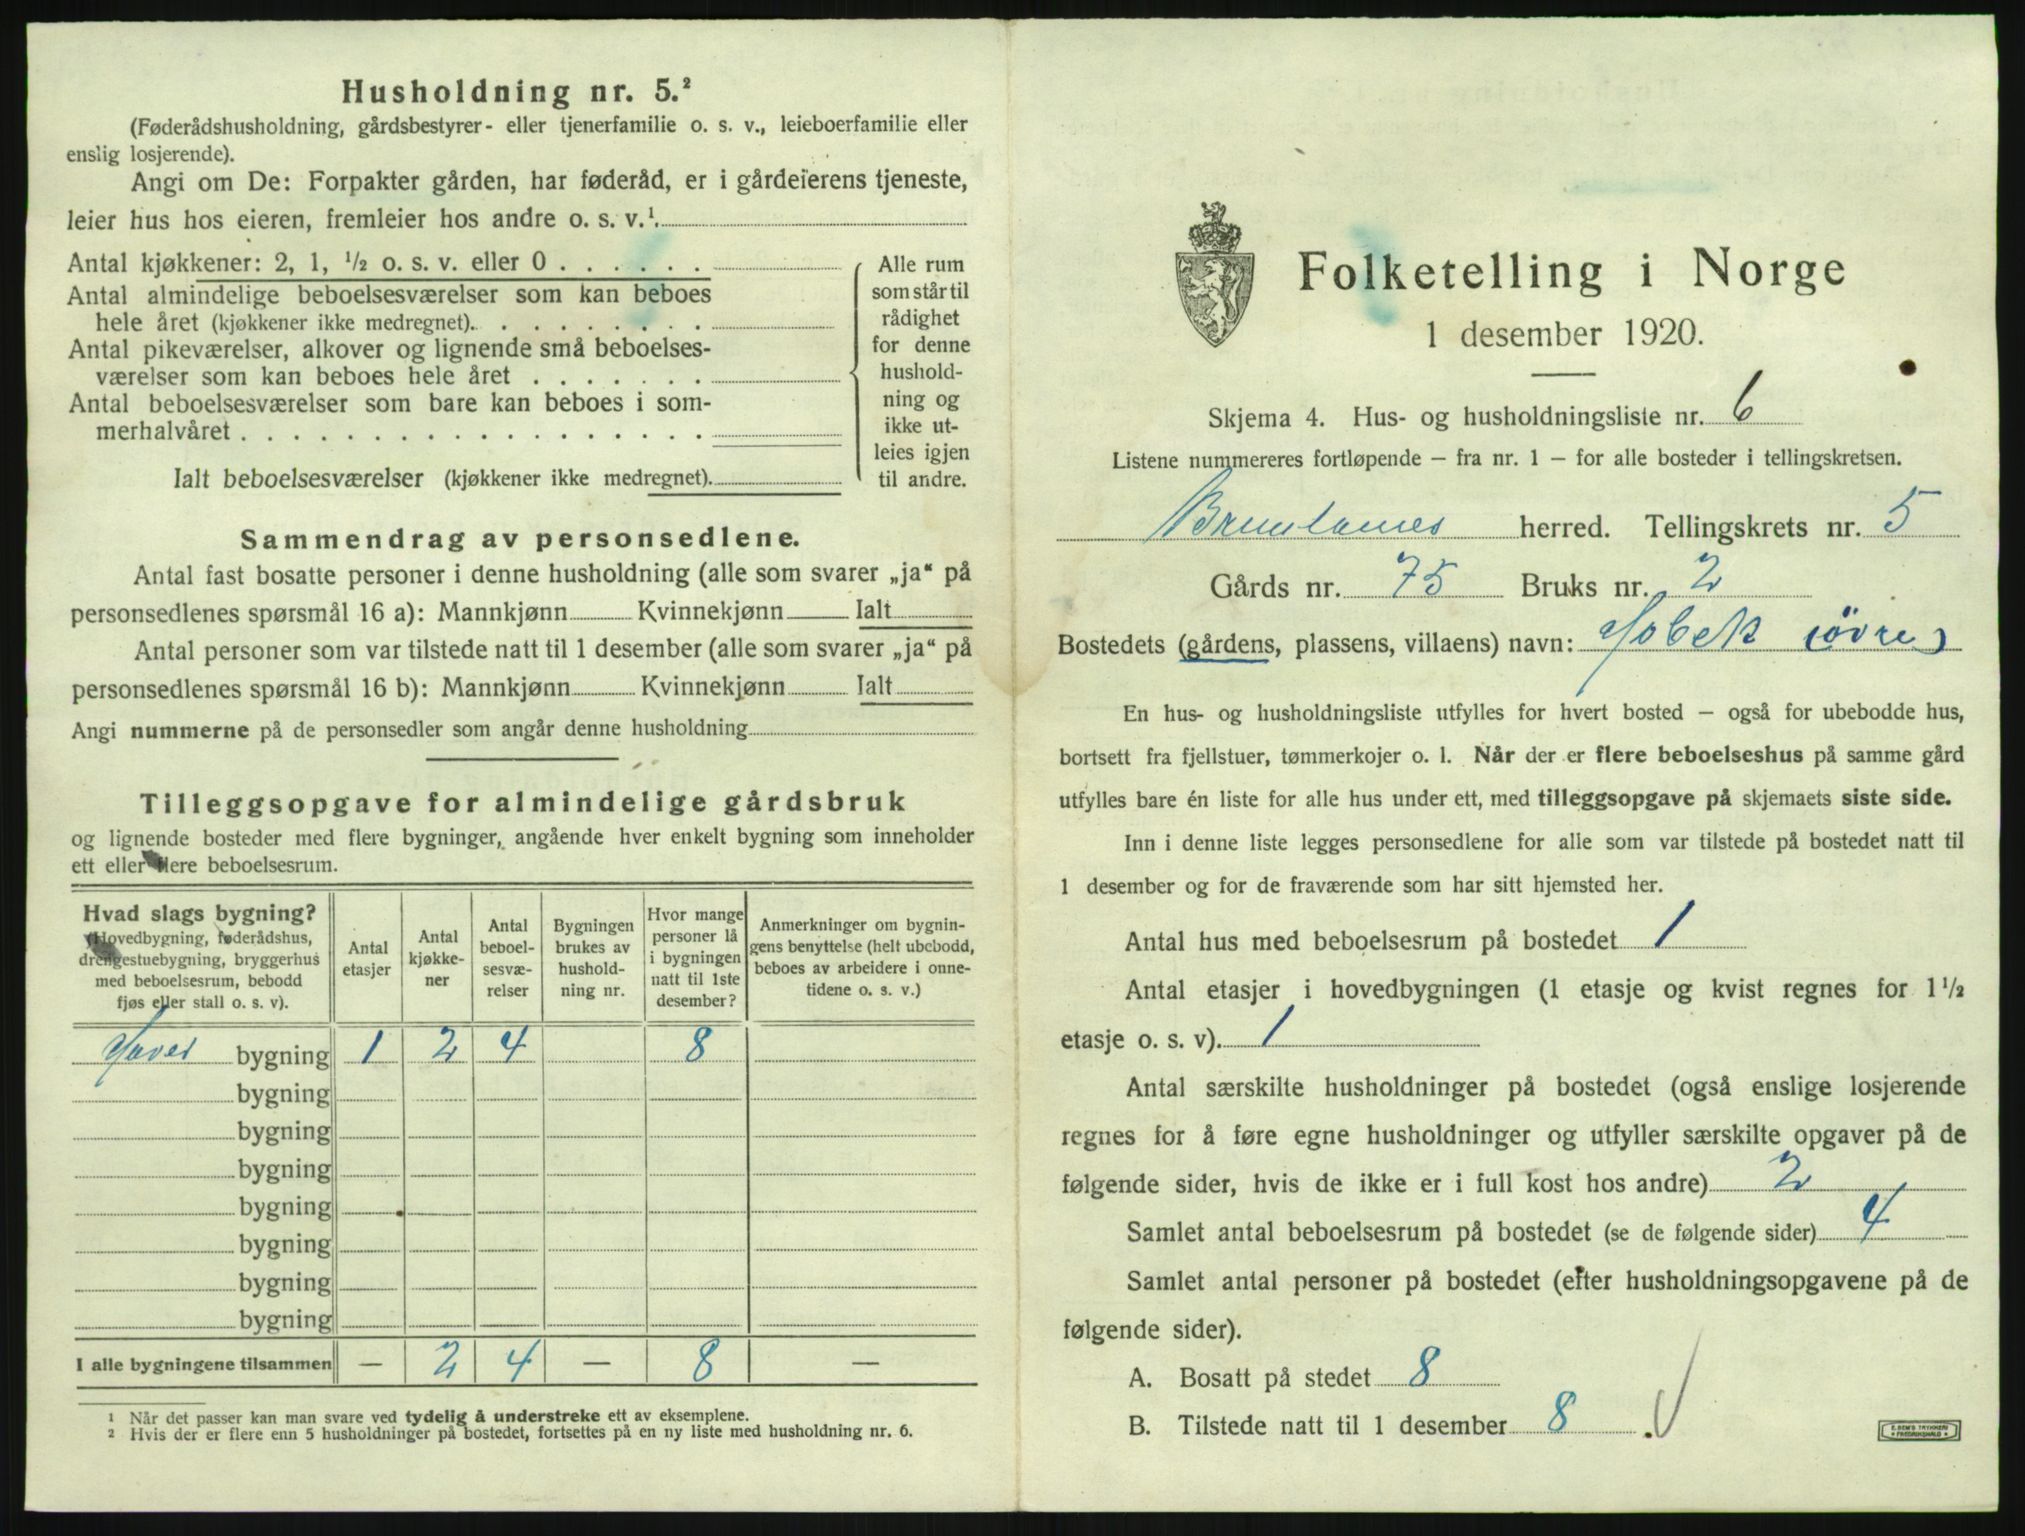 Husholdning nr. 5.²
(Føderådshusholdning, gårdsbestyrer- eller tjenerfamilie o. s. v., leieboerfamilie eller
enslig losjerende).
Angi om De: Forpakter gården, har føderåd, er i gårdeierens tjeneste,
leier hus hos eieren, fremleier hos andre o. s. v.¹.
Antal kjøkkener: 2, 1, ½ o. s. v. eller 0 . . . . . .
Antal almindelige beboelsesværelser som kan beboes
hele året (kjøkkener ikke medregnet). . . . . . . . .
Antal pikeværelser, alkover og lignende små beboelses-
værelser som kan beboes hele året . . . . . . .
Antal beboelsesværelser som bare kan beboes i som-
merhalvåret . . . . . . . . . . . . . . . . . .
Ialt beboelsesværelser (kjøkkener ikke medregnet).
Alle rum
som står til
rådighet
for denne
hushold-
ning og
ikke ut-
leies igjen
til andre.
Sammendrag av personsedlene.
Antal fast bosatte personer i denne husholdning (alle som svarer „ja“ på
personsedlenes spørsmål 16 a): Mannkjønn Kvinnekjønn Ialt
Antal personer som var tilstede natt til 1 desember (alle som svarer „ja“ på
personsedlenes spørsmål 16 b): Mannkjønn Kvinnekjønn Ialt
Angi nummerne på de personsedler som angår denne husholdning
Tilleggsopgave for almindelige gårdsbruk
og lignende bosteder med flere bygninger, angående hver enkelt bygning som inneholder
ett eller flere beboelsesrum.
Hvad slags bygning?
(Hovedbygning, føderådshus,
drengestuebygning, bryggerhus
med beboelsesrum, bebodd
fjøs eller stall o. s. v).
Antal
etasjer
Antal
kjøkke-
ner
Antal
beboel-
sesvæ-
relser
Bygningen
brukes av
hushold-
ning nr.
Hvor mange
personer lå
i bygningen
natt til 1ste
desember?
Anmerkninger om bygnin-
gens benyttelse (helt ubebodd,
beboes av arbeidere i onne-
tidene o. s. v.)
Hoved bygning 1 2 4 8
bygning
bygning
bygning
bygning
bygning
bygning
bygning
I alle bygningene tilsammen — 2 4 — 8 —
¹ Når det passer kan man svare ved tydelig å understreke ett av eksemplene.
² Hvis der er flere enn 5 husholdninger på bostedet, fortsettes på en ny liste med husholdning nr. 6.
Folketelling i Norge
1 desember 1920.
Skjema 4. Hus- og husholdningsliste nr. 6
Listene nummereres fortløpende — fra nr. 1 — for alle bosteder i tellingskretsen.
Brunlanes herred. Tellingskrets nr. 5
Gårds nr. 75 Bruks nr. 2
Bostedets (gårdens, plassens, villaens) navn: Hobæk (øvre)
En hus- og husholdningsliste utfylles for hvert bosted — også for ubebodde hus,
bortsett fra fjellstuer, tømmerkojer o. l. Når der er flere beboelseshus på samme gård
utfylles bare én liste for alle hus under ett, med tilleggsopgave på skjemaets siste side.
Inn i denne liste legges personsedlene for alle som var tilstede på bostedet natt til
1 desember og for de fraværende som har sitt hjemsted her.
Antal hus med beboelsesrum på bostedet 1
Antal etasjer i hovedbygningen (1 etasje og kvist regnes for 1½
etasje o. s. v). 1
Antal særskilte husholdninger på bostedet (også enslige losjerende
regnes for å føre egne husholdninger og utfyller særskilte opgaver på de
følgende sider, hvis de ikke er i full kost hos andre) 2
Samlet antal beboelsesrum på bostedet (se de følgende sider) 4
Samlet antal personer på bostedet (efter husholdningsopgavene på de
følgende sider).
A. Bosatt på stedet 8
B. Tilstede natt til 1 desember 8
E. SEM'S TRYKKERI
FREDRIKSHALD